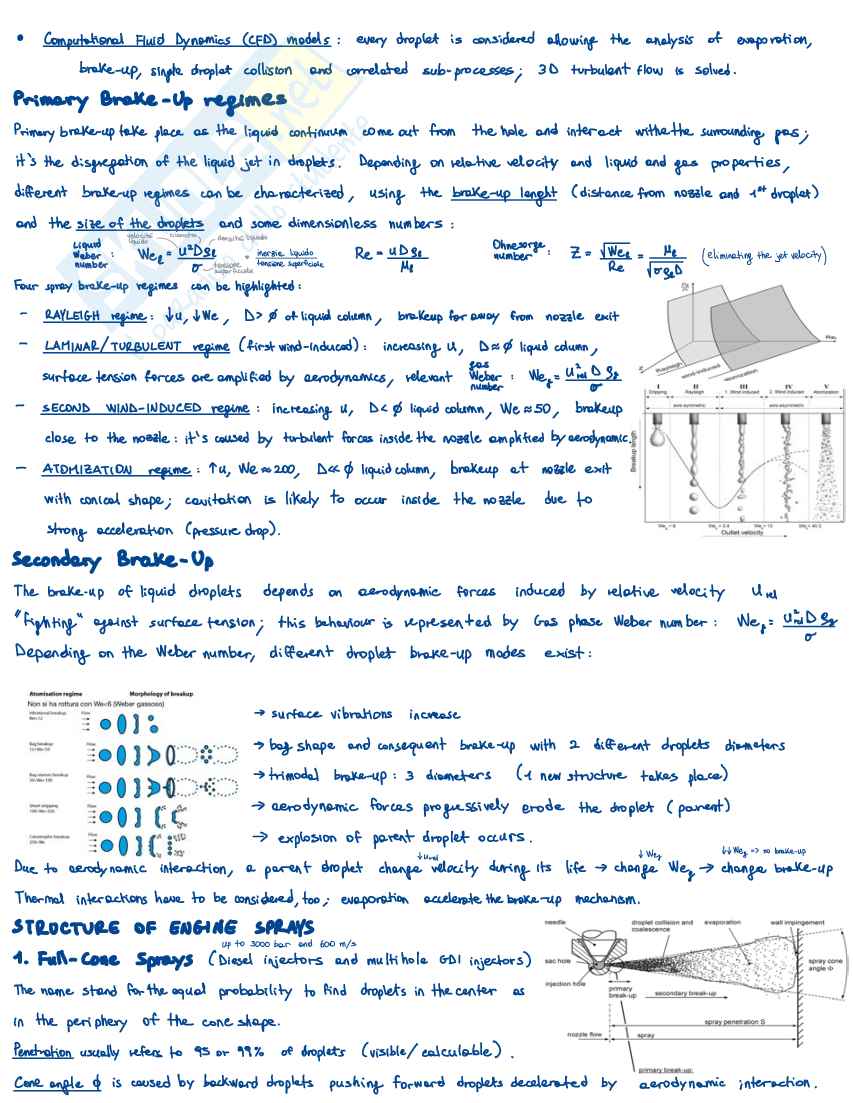 • Computational Fluid Dynamics (CFD) models: every droplet is considered allowing the analysis of evaporation,
brake-up, single droplet collision and correlated sub-processes; 3D turbulent flow is solved.
Primary Brake-Up regimes
Primary brake-up take place as the liquid continuum come out from the hole and interact withthe surrounding gas;
it's the disgregation of the liquid jet in droplets. Depending on relative velocity and liquid and gas properties,
different brake-up regimes can be characterized, using the brake-up lenght (distance from nozzle and 1st droplet)
and the size of the droplets and some dimensionless numbers:
Liquid Weber number : We_l = u²Dρ_l / σ = inerzia liquido / tensione superficiale Re = uDρ_l / μ_l Ohnesorge number : Z = √We_l / Re = μ_l / √(σρ_lD) (eliminating the jet velocity)
velocità liquido
densità liquido
tensione superficiale
Four spray break-up regimes can be highlighted:
– RAYLEIGH regime: ↓u, ↓We, D > ϕ of liquid column, breakup far away from nozzle exit
– LAMINAR/TURBULENT regime (first wind-induced): increasing u, D≈ϕ liquid column,
surface tension forces are amplified by aerodynamics, relevant gas Weber number : We_g = u²_rel D ρ_g / σ
– SECOND WIND-INDUCED regime: increasing u, D<ϕ liquid column, We≈50, breakup
close to the nozzle: it's caused by turbulent forces inside the nozzle amplified by aerodynamic.
– ATOMIZATION regime: ↑u, We≈200, D≪ϕ liquid column, breakup at nozzle exit
with conical shape; cavitation is likely to occur inside the nozzle due to
strong acceleration (pressure drop).
Rayleigh
wind-induced
atomization
I II III IV V
Dripping Rayleigh 1. Wind induced 2. Wind induced Atomization
axis-symmetric axis-asymmetric
Breakup length
Outlet velocity
Secondary Brake-Up
The brake-up of liquid droplets depends on aerodynamic forces induced by relative velocity u_rel
"fighting" against surface tension; this behaviour is represented by Gas phase Weber number: We_g = u²_rel D ρ_g / σ
Depending on the Weber number, different droplet brake-up modes exist:
Atomisation regime Morphology of breakup
Non si ha rottura con We<6 (Weber gassoso)
Vibrational breakup Flow
→ surface vibrations increase
Bag breakup Flow
→ bag shape and consequent brake-up with 2 different droplets diameters
Bag-stamen breakup Flow
→ trimodal brake-up: 3 diameters (1 new structure takes place)
Sheet stripping Flow
→ aerodynamic forces progressively erode the droplet (parent)
Catastrophic breakup Flow
→ explosion of parent droplet occurs.
↓u_rel ↓We_g ↓↓We_g => no brake-up
Due to aerodynamic interaction, a parent droplet change velocity during its life → change We_g → change brake-up
Thermal interactions have to be considered, too; evaporation accelerate the brake-up mechanism.
STRUCTURE OF ENGINE SPRAYS
up to 3000 bar and 600 m/s
1. Full-Cone Sprays (Diesel injectors and multihole GDI injectors)
The name stand for the equal probability to find droplets in the center as
in the periphery of the cone shape.
Penetration usually refers to 95 or 99% of droplets (visible/calculable).
Cone angle ϕ is caused by backward droplets pushing forward droplets decelerated by aerodynamic interaction.
needle
droplet collision and coalescence
evaporation
wall impingement
sac hole
injection hole
primary break-up
secondary break-up
spray cone angle Φ
spray penetration S
nozzle flow
spray
primary break-up: